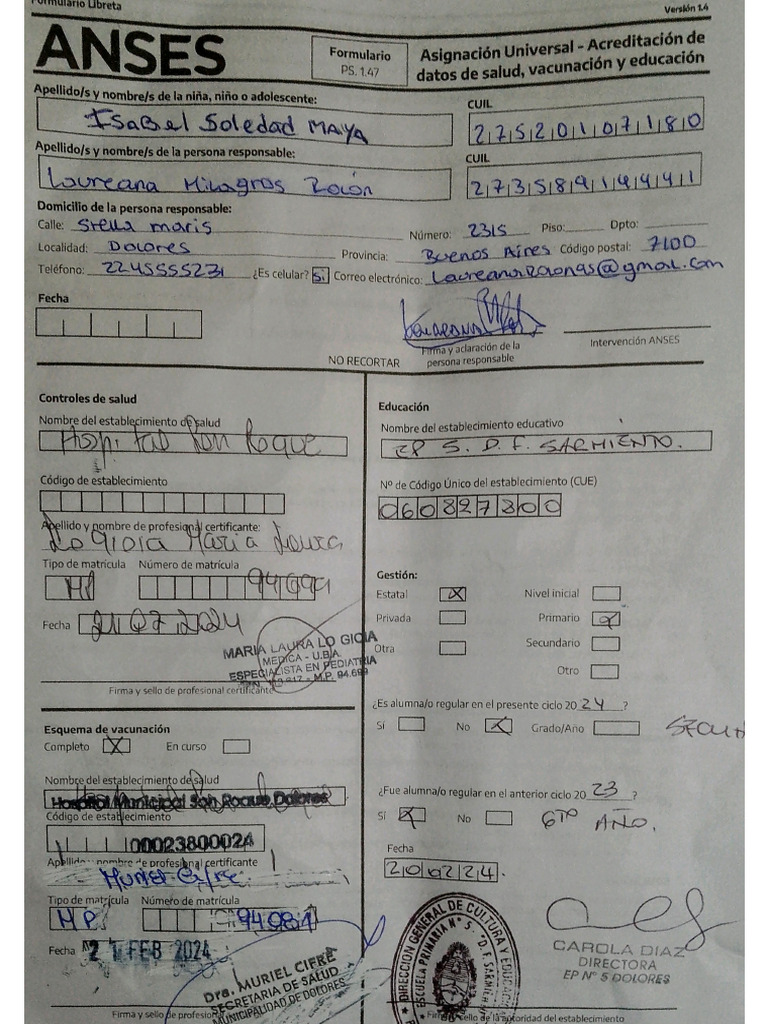 Formulario Libreta
Versión 1.4
ANSES
Formulario
PS. 1.47
Asignación Universal - Acreditación de
datos de salud, vacunación y educación
Apellido/s y nombre/s de la niña, niño o adolescente:
CUIL
Isabel Soledad MAYA
27520107180
Apellido/s y nombre/s de la persona responsable:
CUIL
Laureana Milagros
27358914441
Domicilio de la persona responsable:
Calle: Stella maris Número: 2315 Piso: Dpto:
Localidad: Dolores Provincia: Buenos Aires Código postal: 7100
Teléfono: 2245555231 ¿Es celular? Si Correo electrónico:
Fecha
Firma y aclaración de la
persona responsable
Intervención ANSES
NO RECORTAR
Controles de salud
Nombre del establecimiento de salud
Hospital San Roque
Código de establecimiento
Apellido y nombre de profesional certificante:
Lo Gioia Maria Laura
Tipo de matrícula Número de matrícula
MP 94699
Fecha 21 02 2024
MARIA LAURA LO GIOIA
MEDICA - U.B.A.
ESPECIALISTA EN PEDIATRIA
M.P. 94.699
Firma y sello de profesional certificante
Esquema de vacunación
Completo X En curso
Nombre del establecimiento de salud
Hospital Municipal San Roque Dolores
Código de establecimiento
00023800024
Apellido y nombre de profesional certificante
Muriel Cifre
Tipo de matrícula Número de matrícula
MP 94081
Fecha 21 FEB 2024
Dra. MURIEL CIFRE
SECRETARIA DE SALUD
MUNICIPALIDAD DE DOLORES
Firma y sello de profesional
Educación
Nombre del establecimiento educativo
EP 5. D. F. SARMIENTO.
Nº de Código Único del establecimiento (CUE)
060827300
Gestión:
Estatal X Nivel inicial
Privada Primario X
Otra Secundario
Otro
¿Es alumna/o regular en el presente ciclo 20 24 ?
Sí No X Grado/Año
¿Fue alumna/o regular en el anterior ciclo 20 23 ?
Sí X No 6TO AÑO.
Fecha
200224.
DIRECCIÓN GENERAL DE CULTURA Y EDUCACIÓN
ESCUELA PRIMARIA Nº 5 "D. F. SARMIENTO"
CAROLA DIAZ
DIRECTORA
EP Nº 5 DOLORES
Firma y sello de la autoridad del establecimiento